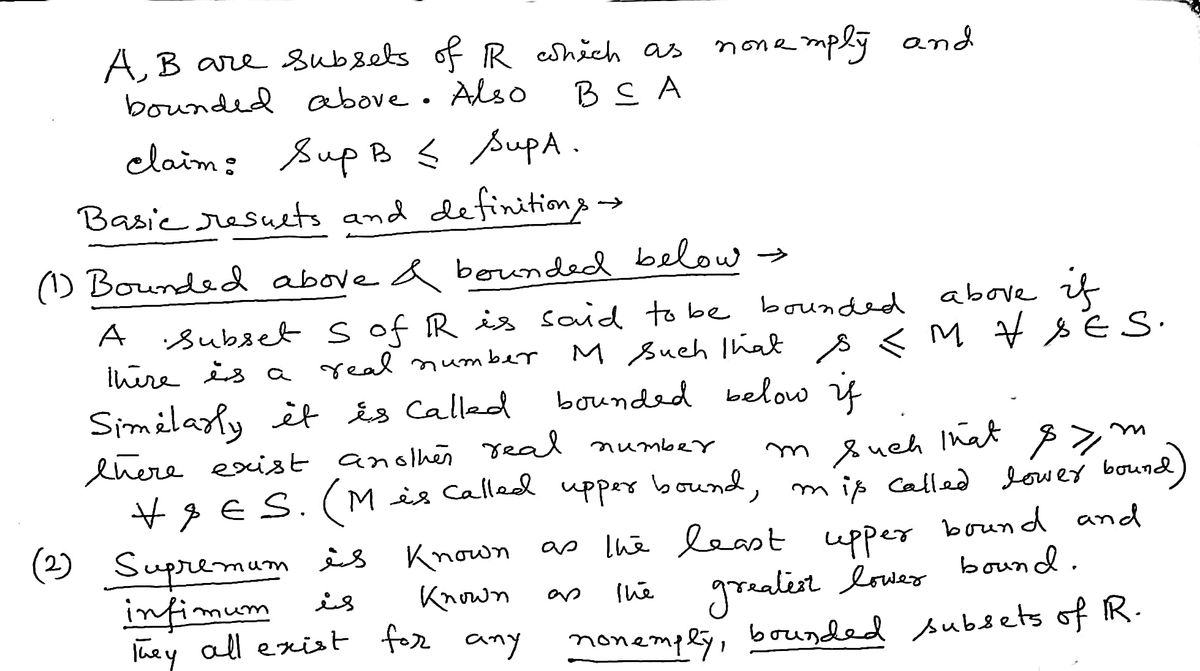 A, B are subsets of ℝ which as nonemply and
bounded above. Also B ⊆ A
claim: Sup B ≤ SupA.
Basic results and definitions →
(1) Bounded above & bounded below →
A subset S of ℝ is said to be bounded above if
there is a real number M such that s ≤ M ∀ s ∈ S.
Similarly it is called bounded below if
there exist another real number m such that s ≥ m
∀ s ∈ S. (M is called upper bound, m is called lower bound)
(2) Supremum is known as the least upper bound and
infimum is known as the greatest lower bound.
They all exist for any nonemply, bounded subsets of ℝ.